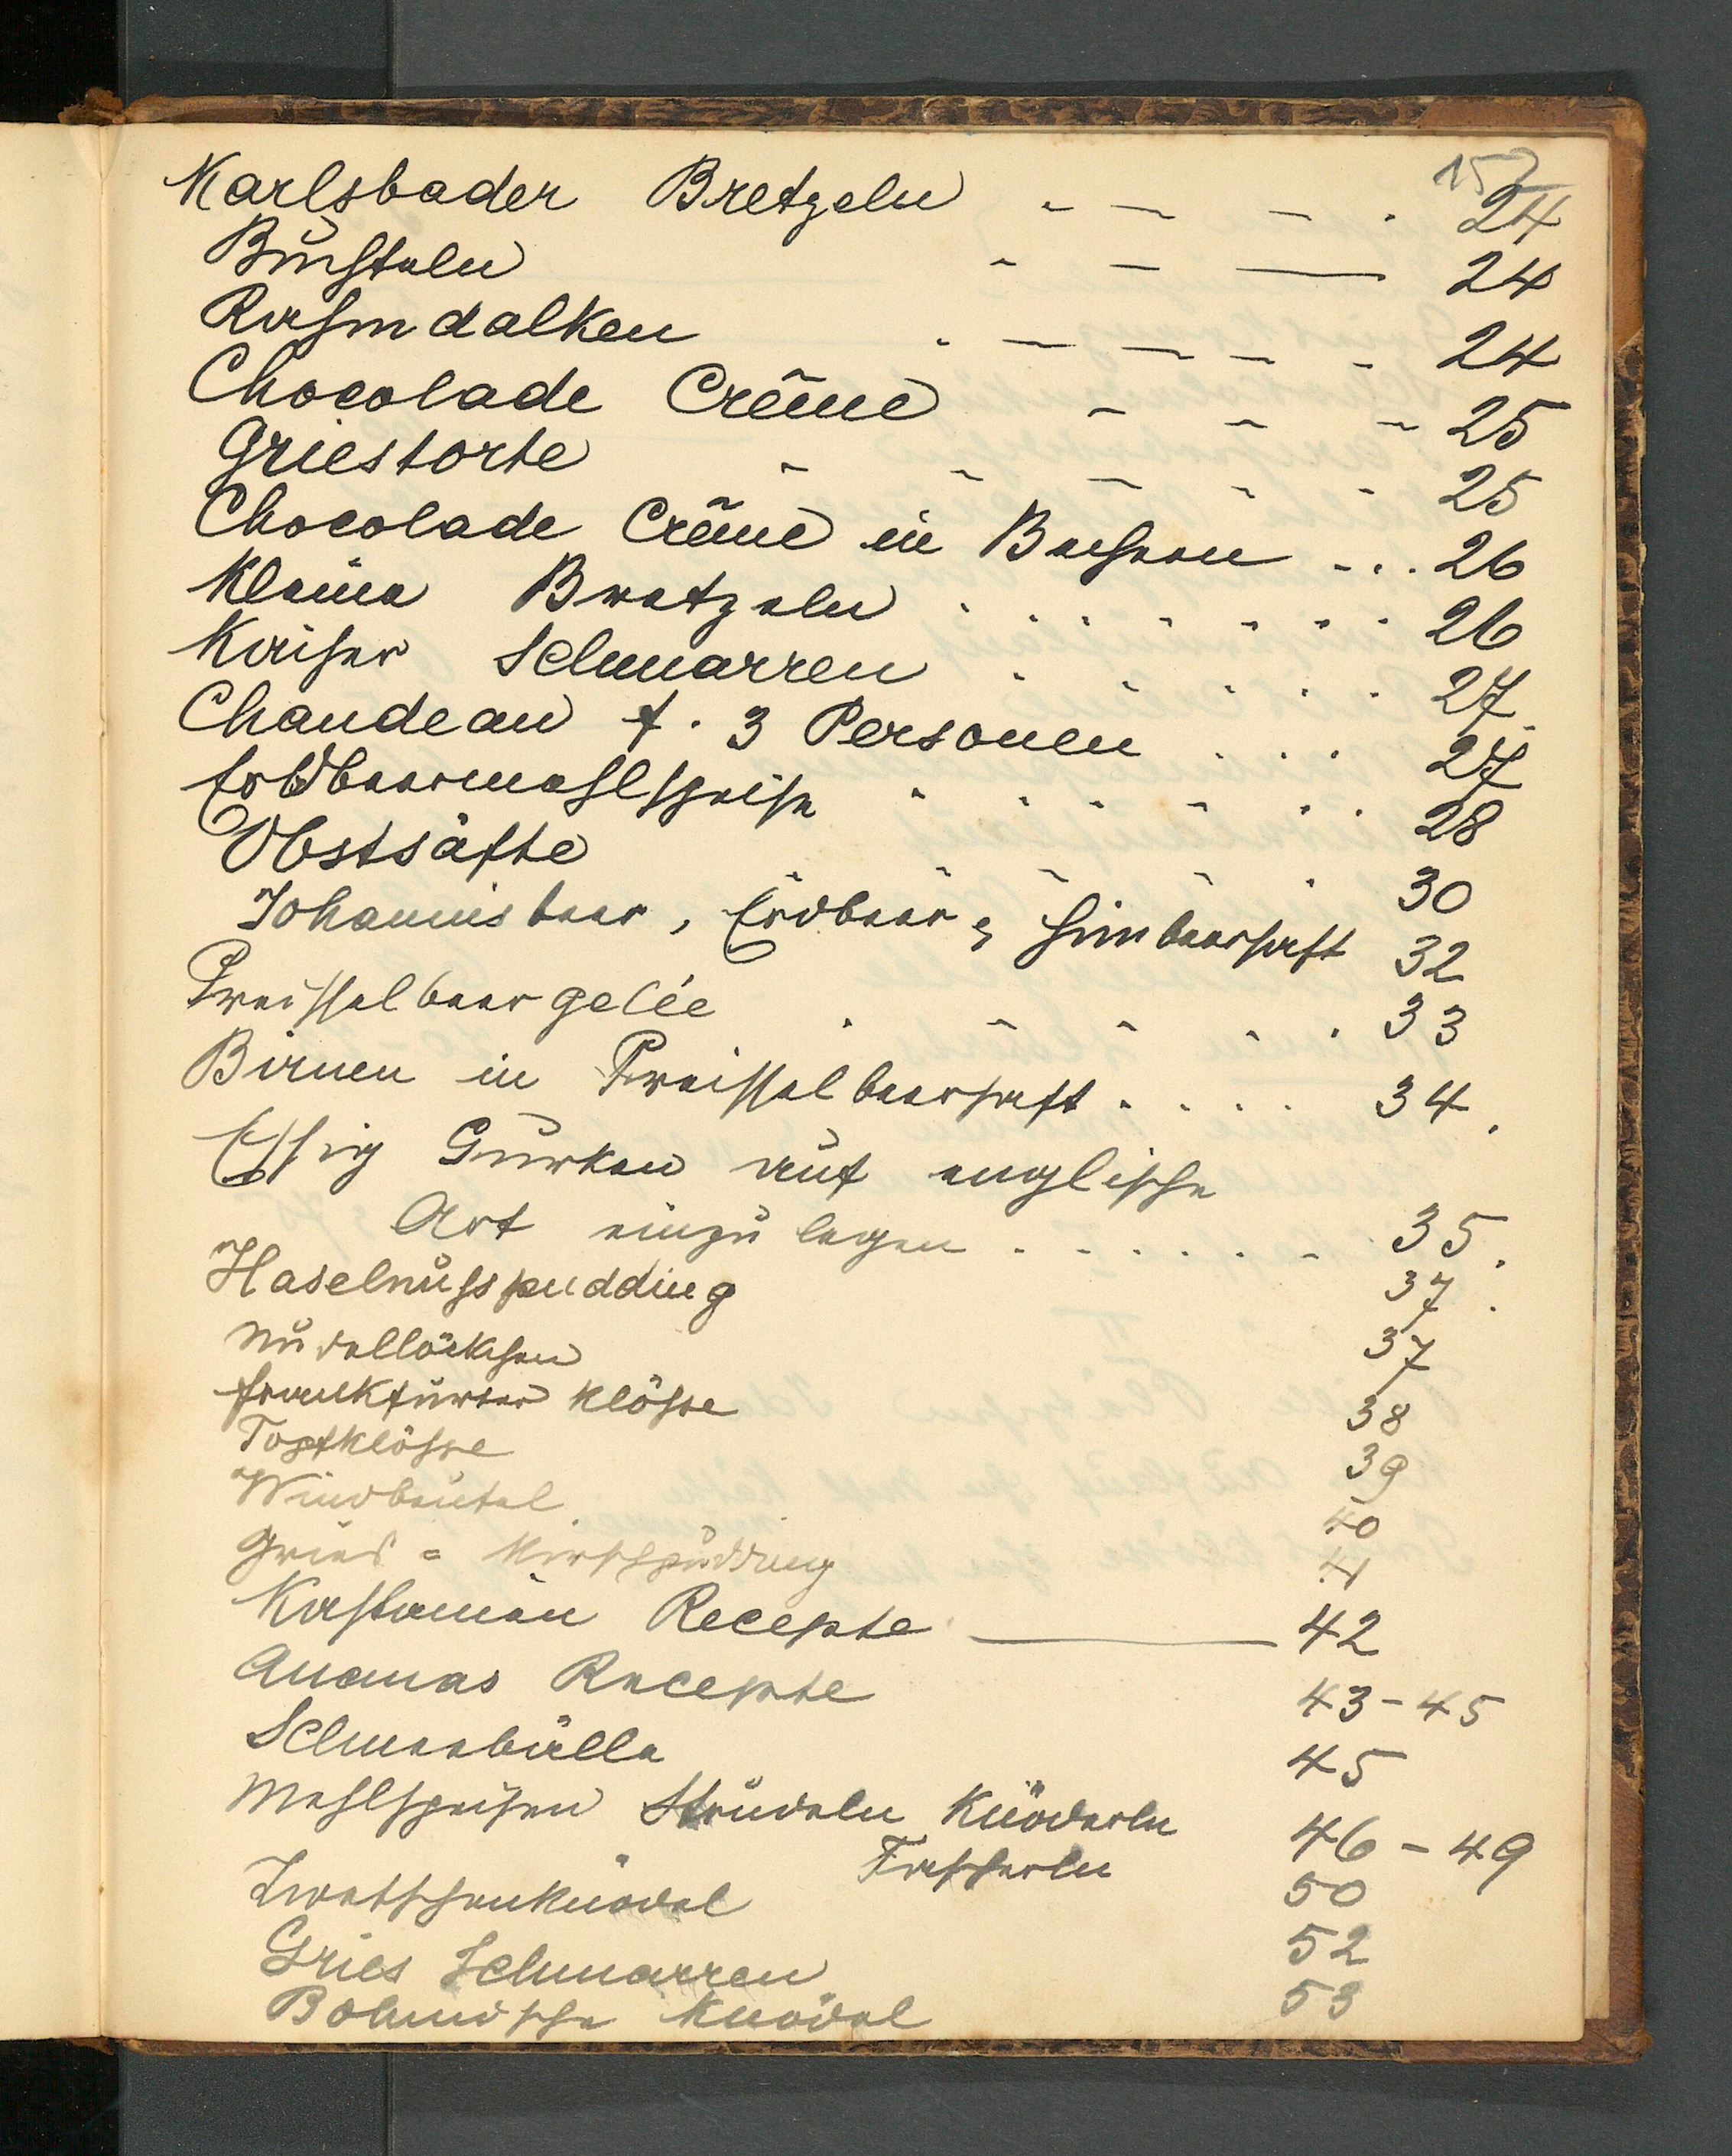 157
Karlsbader Bretzeln - - - . 24
Bürsteln - - — 24
Rahmdalken . - - - - 24
Chocolade Crême - - - 25
Griestorte - - - - - 25
Chocolade Crême in Bechern - . . 26
Kleine Bretzeln . . . . . . . 26
Kaiser Schmarren . . . . . 27.
Chaudeau f. 3 Personen . . . 27
Erdbeermehlspeise . . . . . . 28
Obstsäfte - - - . 30
Johannisbeer, Erdbeer, Himbeersaft 32
Preisselbeergelée . - - - . 33
Birnen in Preisselbeersaft . . . . 34.
Essig Gurken auf englische
Art einzulegen . . . . . . - 35.
Haselnusspudding 37.
Nudellöckchen 37
Frankfurter Klösse 38
Topfklösse 39
Windbeutel 40
Gries = Kirschpudding 41
Kastanien Recepte — 42
Ananas Recepte 43-45
Schneebälle 45
Mehlspeisen Strudeln Knöderln 46-49
Tascherln
Zwetschenknödel 50
Gries Schmarren 52
Bohmische Knödel 53